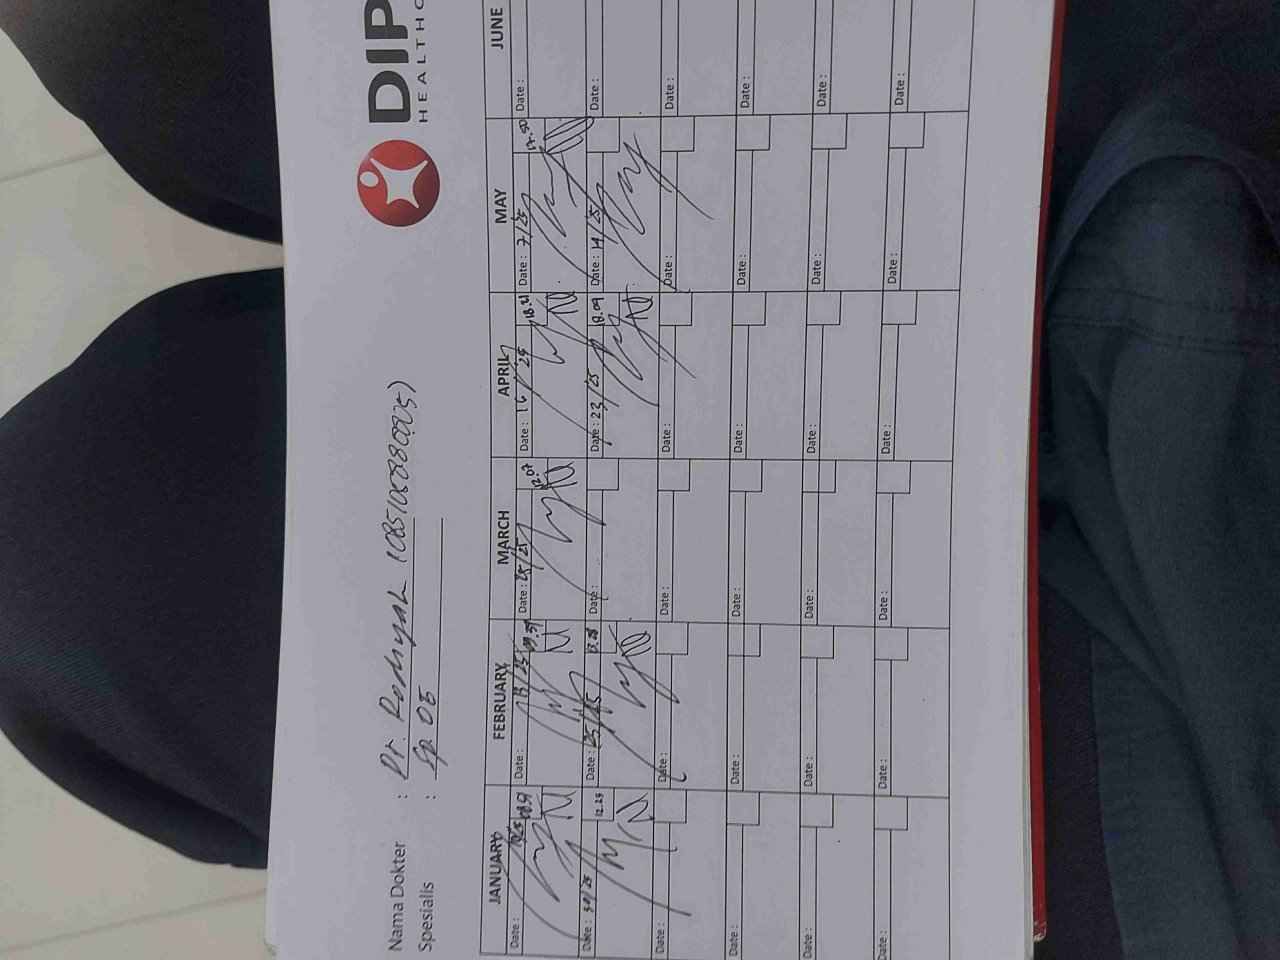 DIP
HEALTHC
Nama Dokter : Dr. Rodiyah (085105880005)
Spesialis : Sp. OG
JANUARY FEBRUARY MARCH APRIL MAY JUNE
Date : Date : Date : 25/25 12.07 Date : 16/25 18.21 Date : 7/25 17.50 Date :
Date : 30/25 12.23 Date : 25/25 13.28 Date : Date : 23/25 18.09 Date : 14/25 Date :
Date : Date : Date : Date : Date : Date :
Date : Date : Date : Date : Date : Date :
Date : Date : Date : Date : Date : Date :
Date : Date : Date : Date : Date : Date :